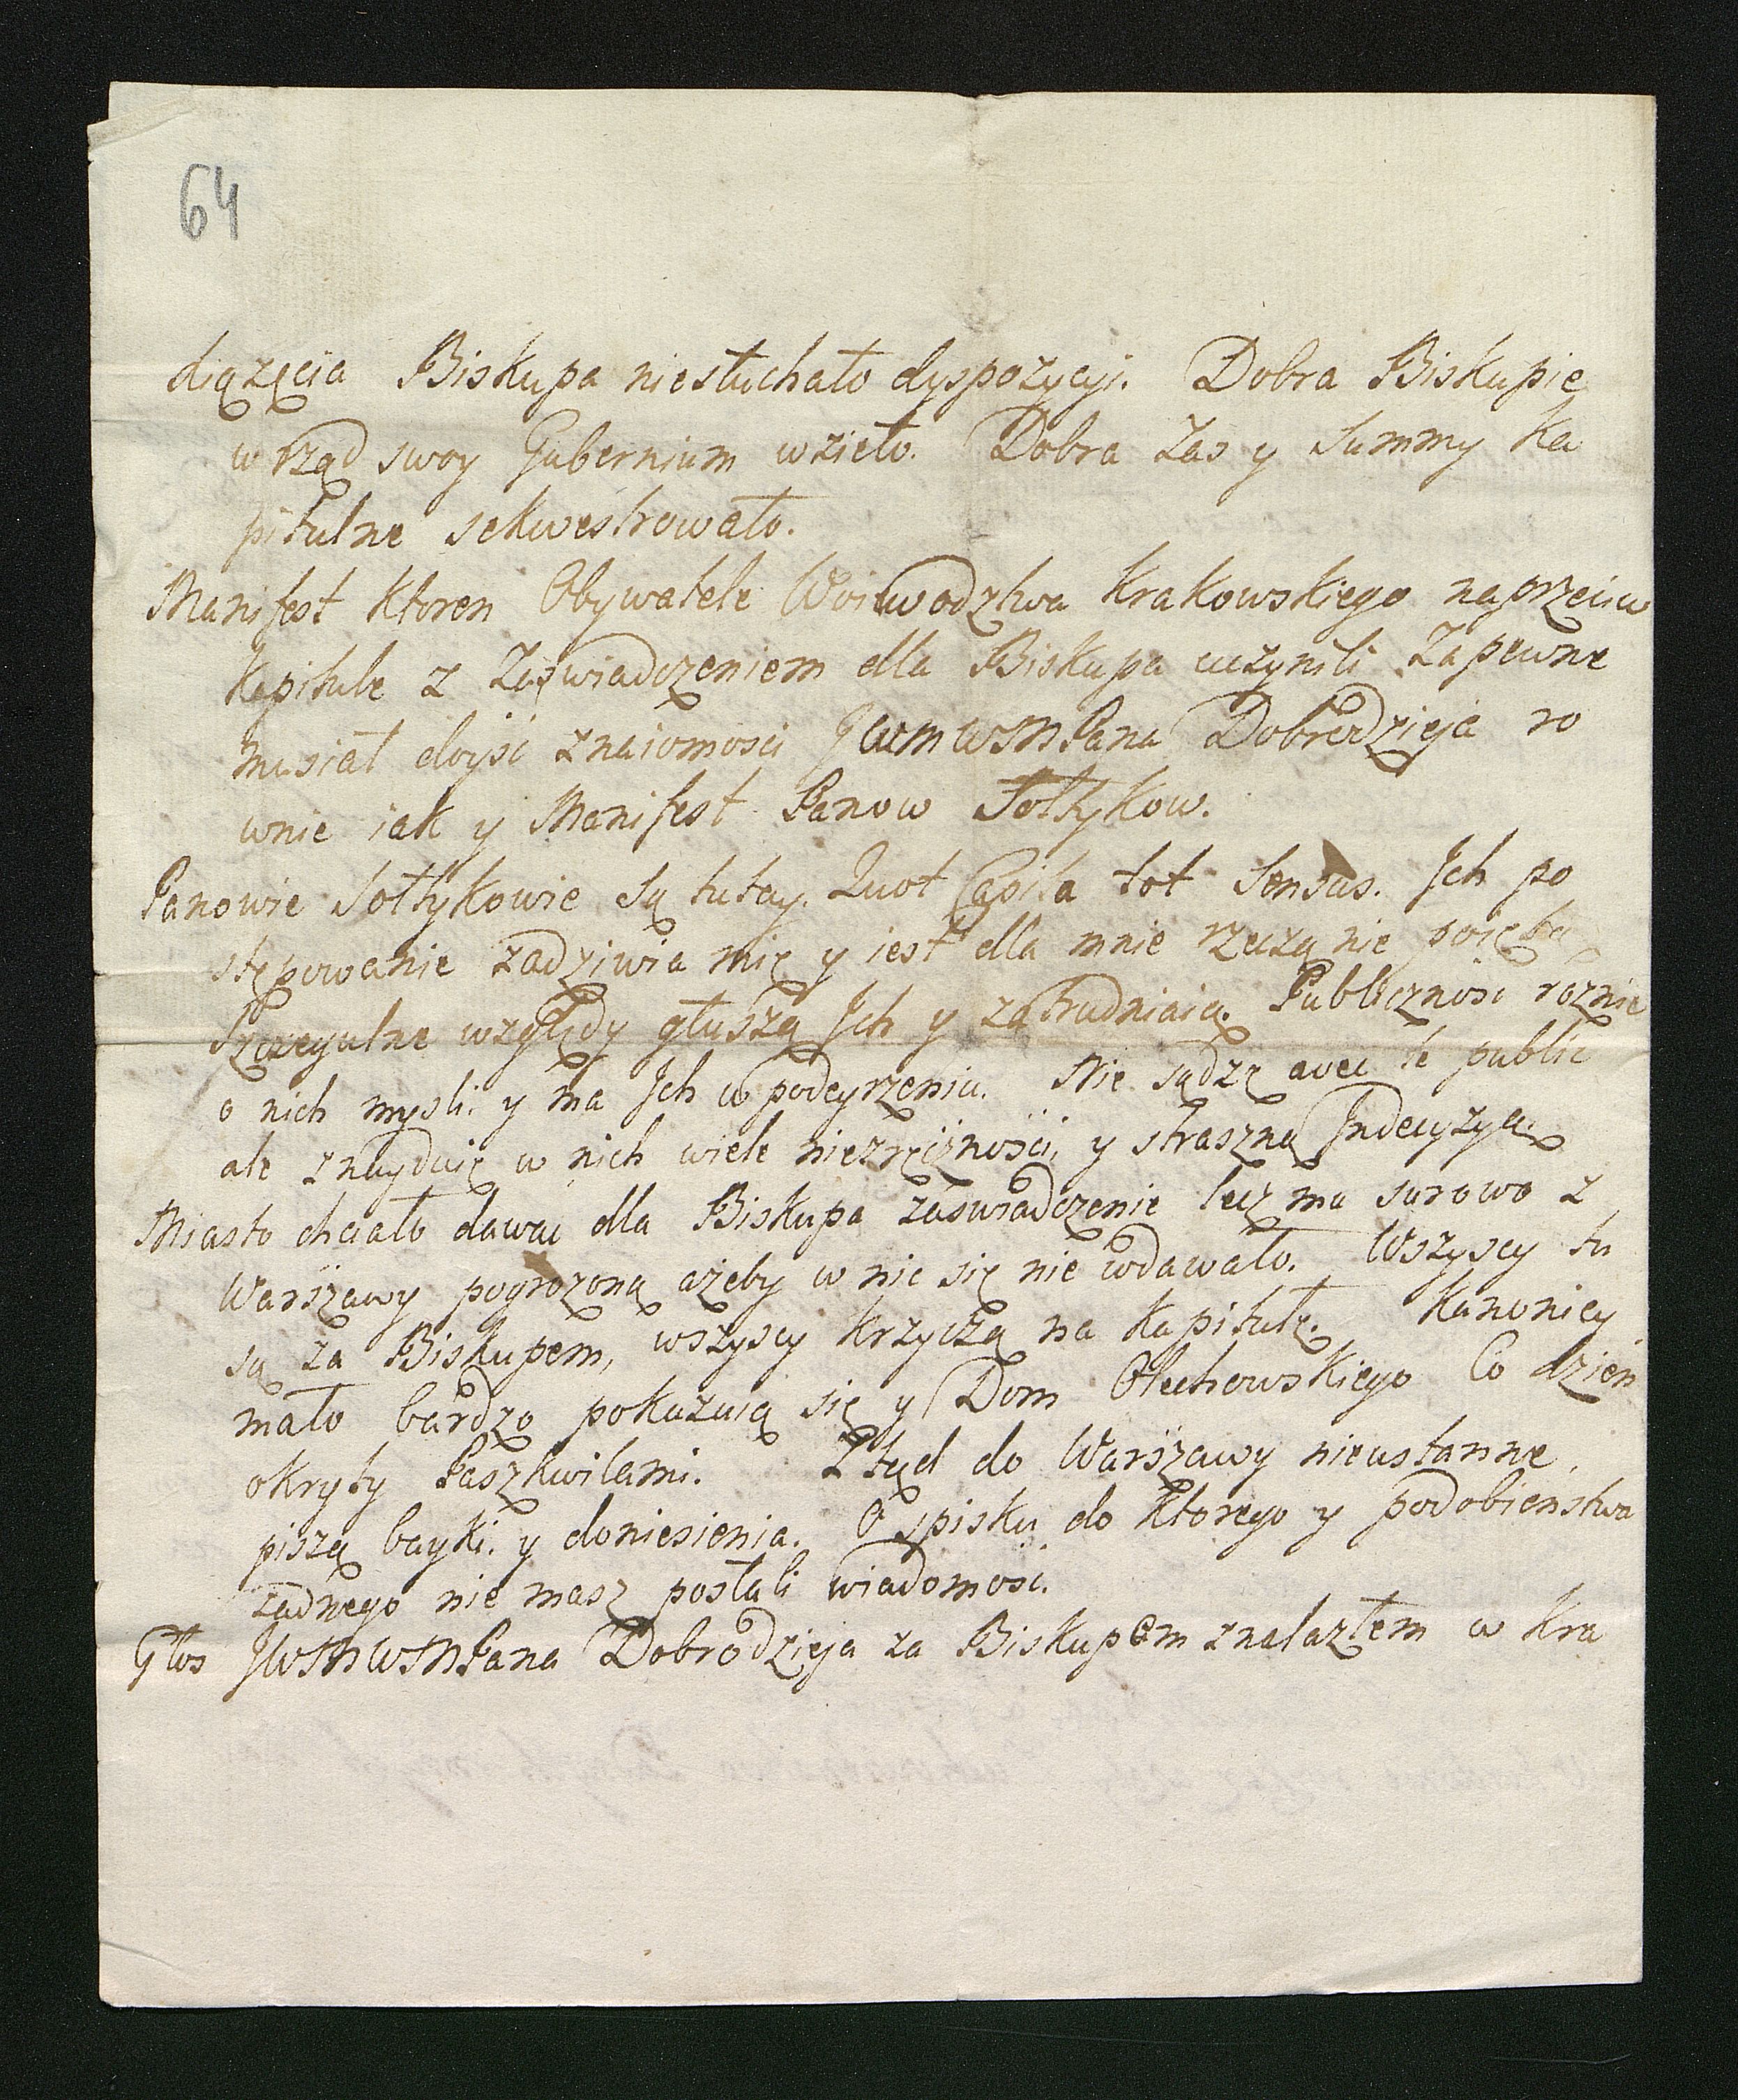 64
Xiązęcia Biskupa niesłuchało dyspozycji. Dobra Biskupie
w rząd swoy Gubernium wzieło. Dobra zas y Summy Ka
pitulne sekwestrowało.
Manifest ktoren Obywatele Woiewodztwa Krakowskiego naprzeciw
Kapitule z Zaswiadczeniem dla Biskupa uczynili zapewne
musiał doyść znaiomosci JWWMWMPana Dobrodzieja ro
wnie iak y Manifest Panow Sołtykow.
Panowie Sołtykowie są tutay. Quot Capita tot Sensus. Ich po
stępowanie zadziwia mię y iest dla mnie rzeczą nie poiętą
Szczegulne względy głuszą Ich y zatrudniaią. Publicznosc roznie
o nich mysli y ma Ich w podeyrzeniu. Nie sądzę avec le public
ale znayduię w nich wiele niezręcznośći, y straszną Indecyzyą.
Miasto chciało dawac dla Biskupa zaswiadczenie lecz ma surowo z
Warszawy pogrozoną ażeby w nic się nie wdawało. Wszyscy tu
są za Biskupem, wszyscy krzyczą na Kapitułę. Kanonicy
mało bardzo pokazuią się y Dom Olechowskiego Co dzien
okryty Paszkwilami. Ztąd do Warszawy nieustanne
piszą bayki y doniesienia. O spisku do ktorego y podobienstwa
zadnego nie masz posłali wiadomosc.
Głos JWWMWMPana Dobrodzieja za Biskupem znalazłem w Kra